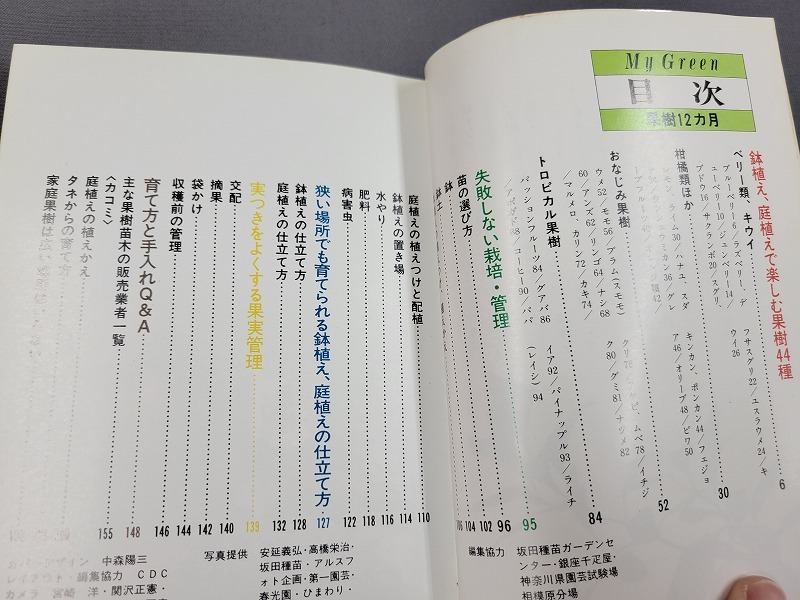 My Green
目次
果樹12カ月
鉢植え、庭植えで楽しむ果樹44種 6
ベリー類、キウイ
ブルーベリー6/ラズベリー/デ
ューベリー10/ジュンベリー14/
ブドウ16/サクランボ20/スグリ、
フサスグリ22/ユスラウメ24/キ
ウイ26
柑橘類ほか 30
ム30/ハナユ、スダ
カン36/グレ
キンカン、ポンカン44/フェジョ
ア46/オリーブ48/ビワ50
おなじみ果樹 52
ウメ52/モモ56/プラム(スモモ)
60/アンズ62/リンゴ64/ナシ68
/マルメロ、カリン72/カキ74/
ムベ78/イチジ
ク80/グミ81/ナツメ82
トロピカル果樹 84
パッションフルーツ84/グアバ86
/アボガド88/コーヒー90/パパ
イア92/パイナップル93/ライチ
(レイシ)94
失敗しない栽培・管理 95
苗の選び方 96
鉢 102
鉢土 104
106
庭植えの植えつけと配植 110
鉢植えの置き場 114
水やり 116
肥料 118
病害虫 122
狭い場所でも育てられる鉢植え、庭植えの仕立て方 127
鉢植えの仕立て方 128
庭植えの仕立て方 132
実つきをよくする果実管理 139
交配 140
摘果 142
袋かけ 144
収穫前の管理 146
育て方と手入れQ&A 148
主な果樹苗木の販売業者一覧 155
〈カコミ〉
庭植えの植えかえ
タネからの育て方
家庭果樹は広い
編集協力 坂田種苗ガーデンセ
ンター・銀座千疋屋・
神奈川県園芸試験場
相模原分場
写真提供 安延義弘・高橋栄治・
坂田種苗・アルスフ
ォト企画・第一園芸・
春光園・ひまわり・
カバーデザイン 中森陽三
レイアウト・編集協力 CDC
カメラ 宮崎洋・関沢正憲・